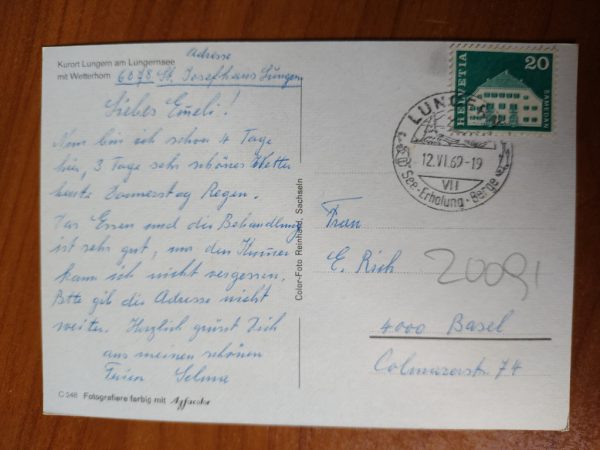 Kurort Lungern am Lungernsee
mit Wetterhorn
Adresse
6078 St. Josefhaus Lungern
Liebes Emeli!
Nun bin ich schon 4 Tage
hier, 3 Tage sehr schönes Wetter
heute Donnerstag Regen.
Das Essen und die Behandlung
ist sehr gut, nur den Kummer
kann ich nicht vergessen.
Bitte gib die Adresse nicht
weiter. Herzlich grüsst Dich
aus meinen schönen
Ferien Selma
C 246 Fotografiere farbig mit Agfacolor
Color-Foto Reinhard, Sachseln
HELVETIA
20
SAMEDAN
LUNGERN
12.VI.69-19
VII
See-Erholung-Berge
Frau
E. Rich
20091
4000 Basel
Colmarerstr. 74